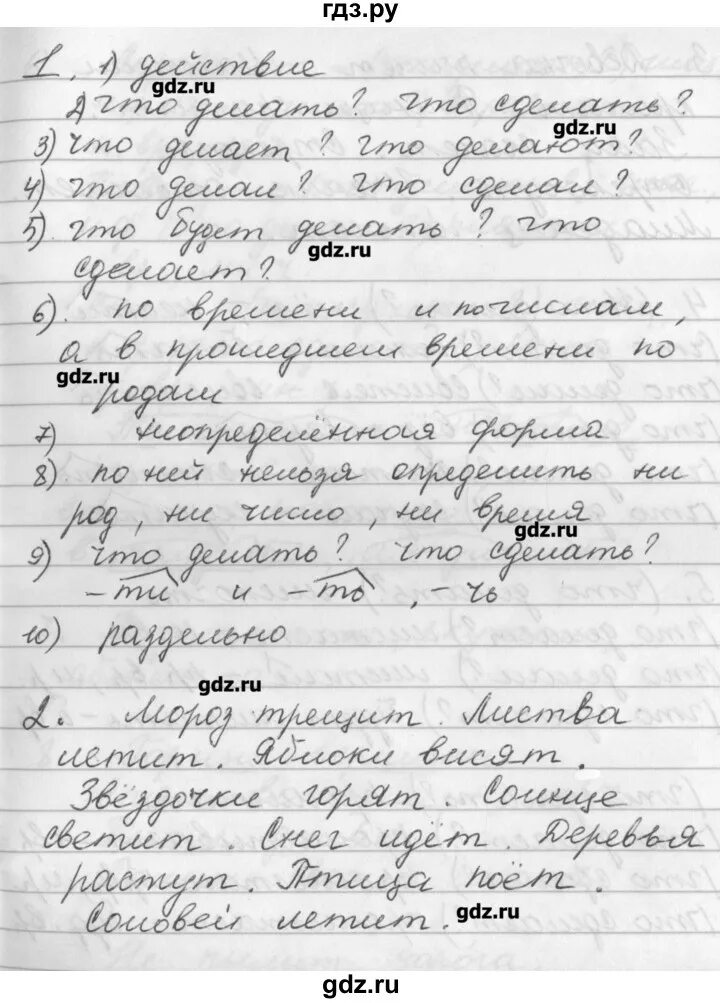 гдз.ру
1. 1) действие
gdz.ru
2) что делать? что сделать?
gdz.ru
3) что делает? что делают?
4) что делал? что сделал?
5) что будет делать? что
gdz.ru
сделает?
6) по времени и по числам,
а в прошедшем времени по
gdz.ru
родам
7) неопределённая форма
8) по ней нельзя определить ни
род, ни число, ни время
gdz.ru
9) что делать? что сделать?
-ти и -ть, -чь
10) раздельно
gdz.ru
2. Мороз трещит. Листва
летит. Яблоки висят.
Звёздочки горят. Солнце
светит. Снег идёт. Деревья
растут. Птица поёт.
Соловей летит.
gdz.ru
gdz.ru